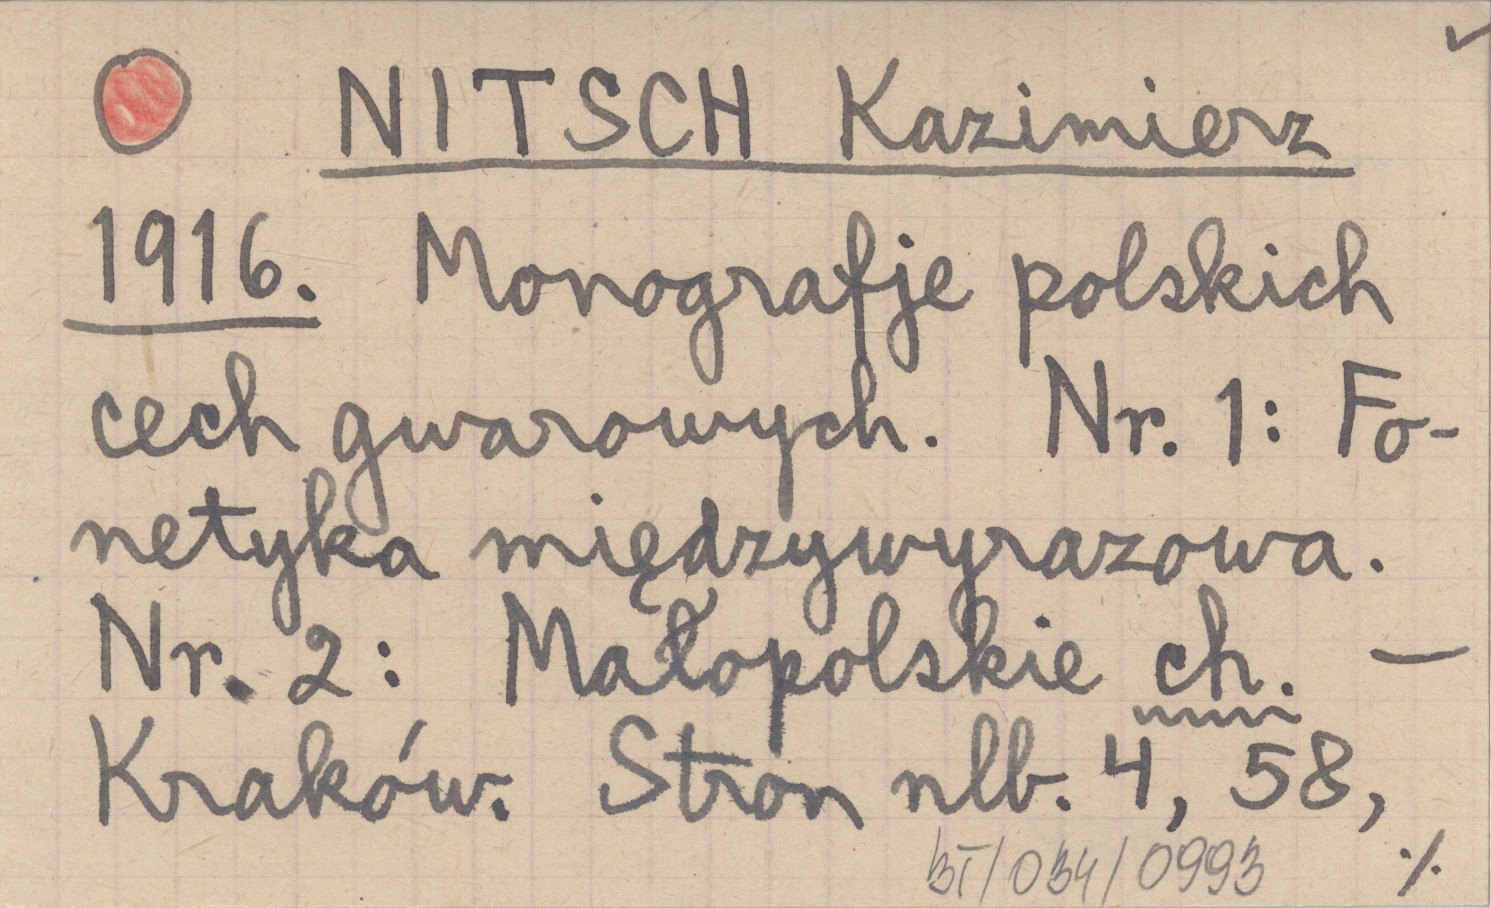 NITSCH Kazimierz
1916. Monografje polskich
cech gwarowych. Nr. 1: Fo-
netyka międzywyrazowa.
Nr. 2: Małopolskie ch. —
Kraków. Stron nlb. 4, 58,
BI/034/0993 ./.